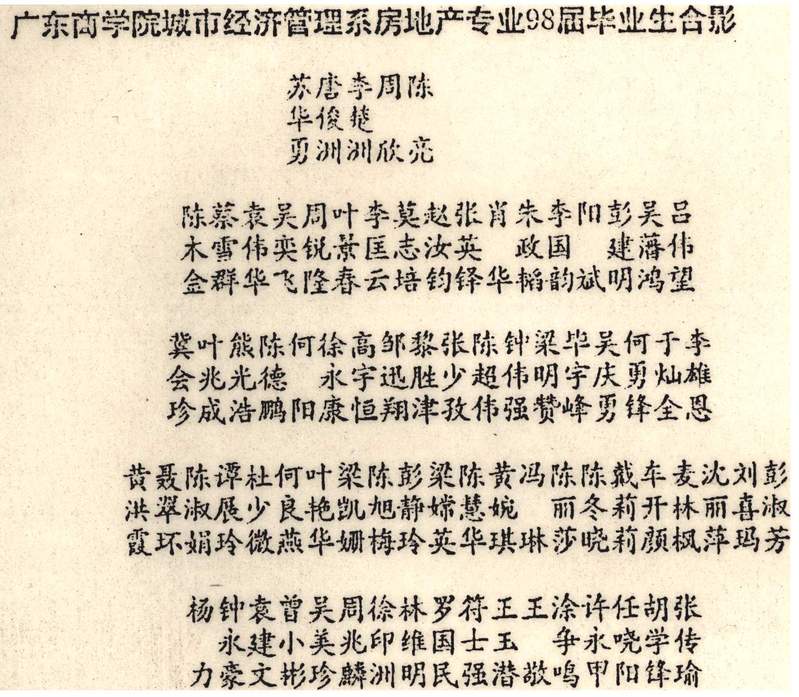 广东商学院城市经济管理系房地产专业98届毕业生合影
苏唐李周陈
华俊楚
勇洲洲欣亮
陈蔡袁吴周叶李莫赵张肖朱李阳彭吴吕
木雪伟奕锐景匡志汝英 政国 建藩伟
金群华飞隆春云培钧铎华韬韵斌明鸿望
冀叶熊陈何徐高邹黎张陈钟梁毕吴何于李
会兆光德 永宇迅胜少超伟明宇庆勇灿雄
珍成浩鹏阳康恒翔津孜伟强赞峰勇锋全恩
黄聂陈谭杜何叶梁陈彭梁陈黄冯陈陈戴车麦沈刘彭
洪翠淑展少良艳凯旭静嫦慧婉 丽冬莉开林丽喜淑
霞环娟玲微燕华姗梅玲英华琪琳莎晓莉颜枫萍玛芳
杨钟袁曾吴周徐林罗符王王涂许任胡张
永建小美兆印维国士玉 争永哓学传
力豪文彬珍麟洲明民强潜敬鸣甲阳锋瑜